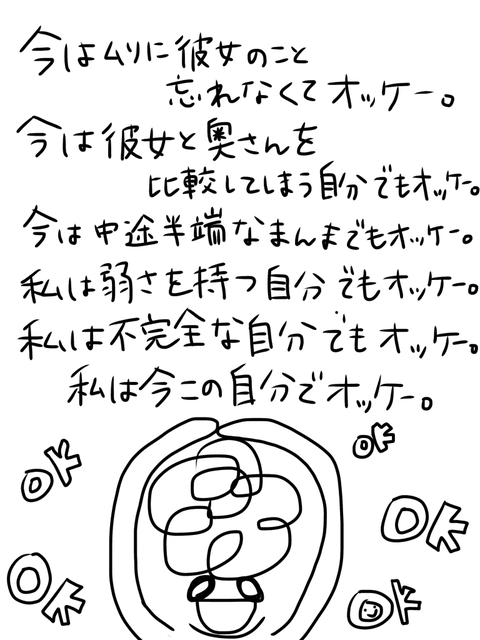 今はムリに彼女のこと
忘れなくてオッケー。
今は彼女と奥さんを
比較してしまう自分でもオッケー。
今は中途半端なまんまでもオッケー。
私は弱さを持つ自分でもオッケー。
私は不完全な自分でもオッケー。
私は今この自分でオッケー。
OK
OK
OK
OK
OK